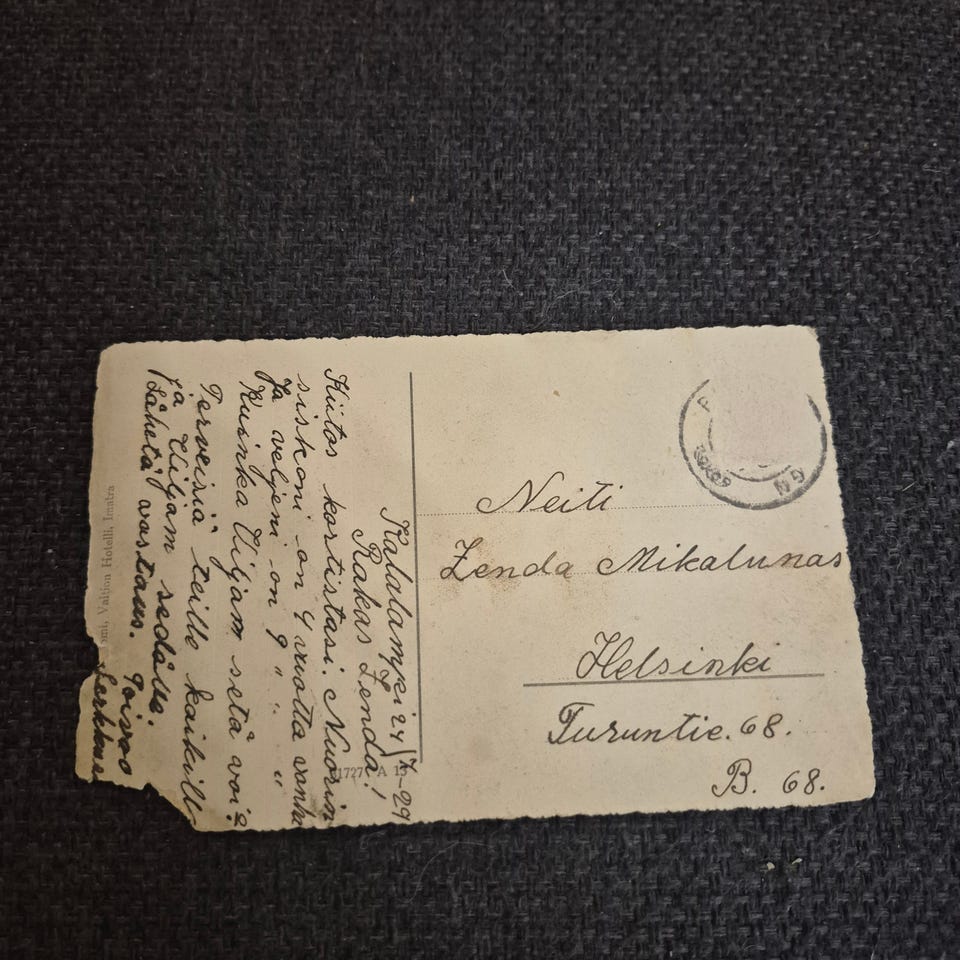 Kalalampi 24/7-29
Rakas Zenda!
Kiitos kortistasi. Nuorin
siskoni on 4 vuotta vanha
Ja veljeni on 9 " "
Kuinka Viljam setä voi?
Terveisiä teille kaikille
ja Viljam sedälle.
Lähetä vastaus. Toivoo
Serkkus
Valtion Hotelli, Imatra
Neiti
Zenda Mikalunas
Helsinki
Turuntie. 68.
B. 68.